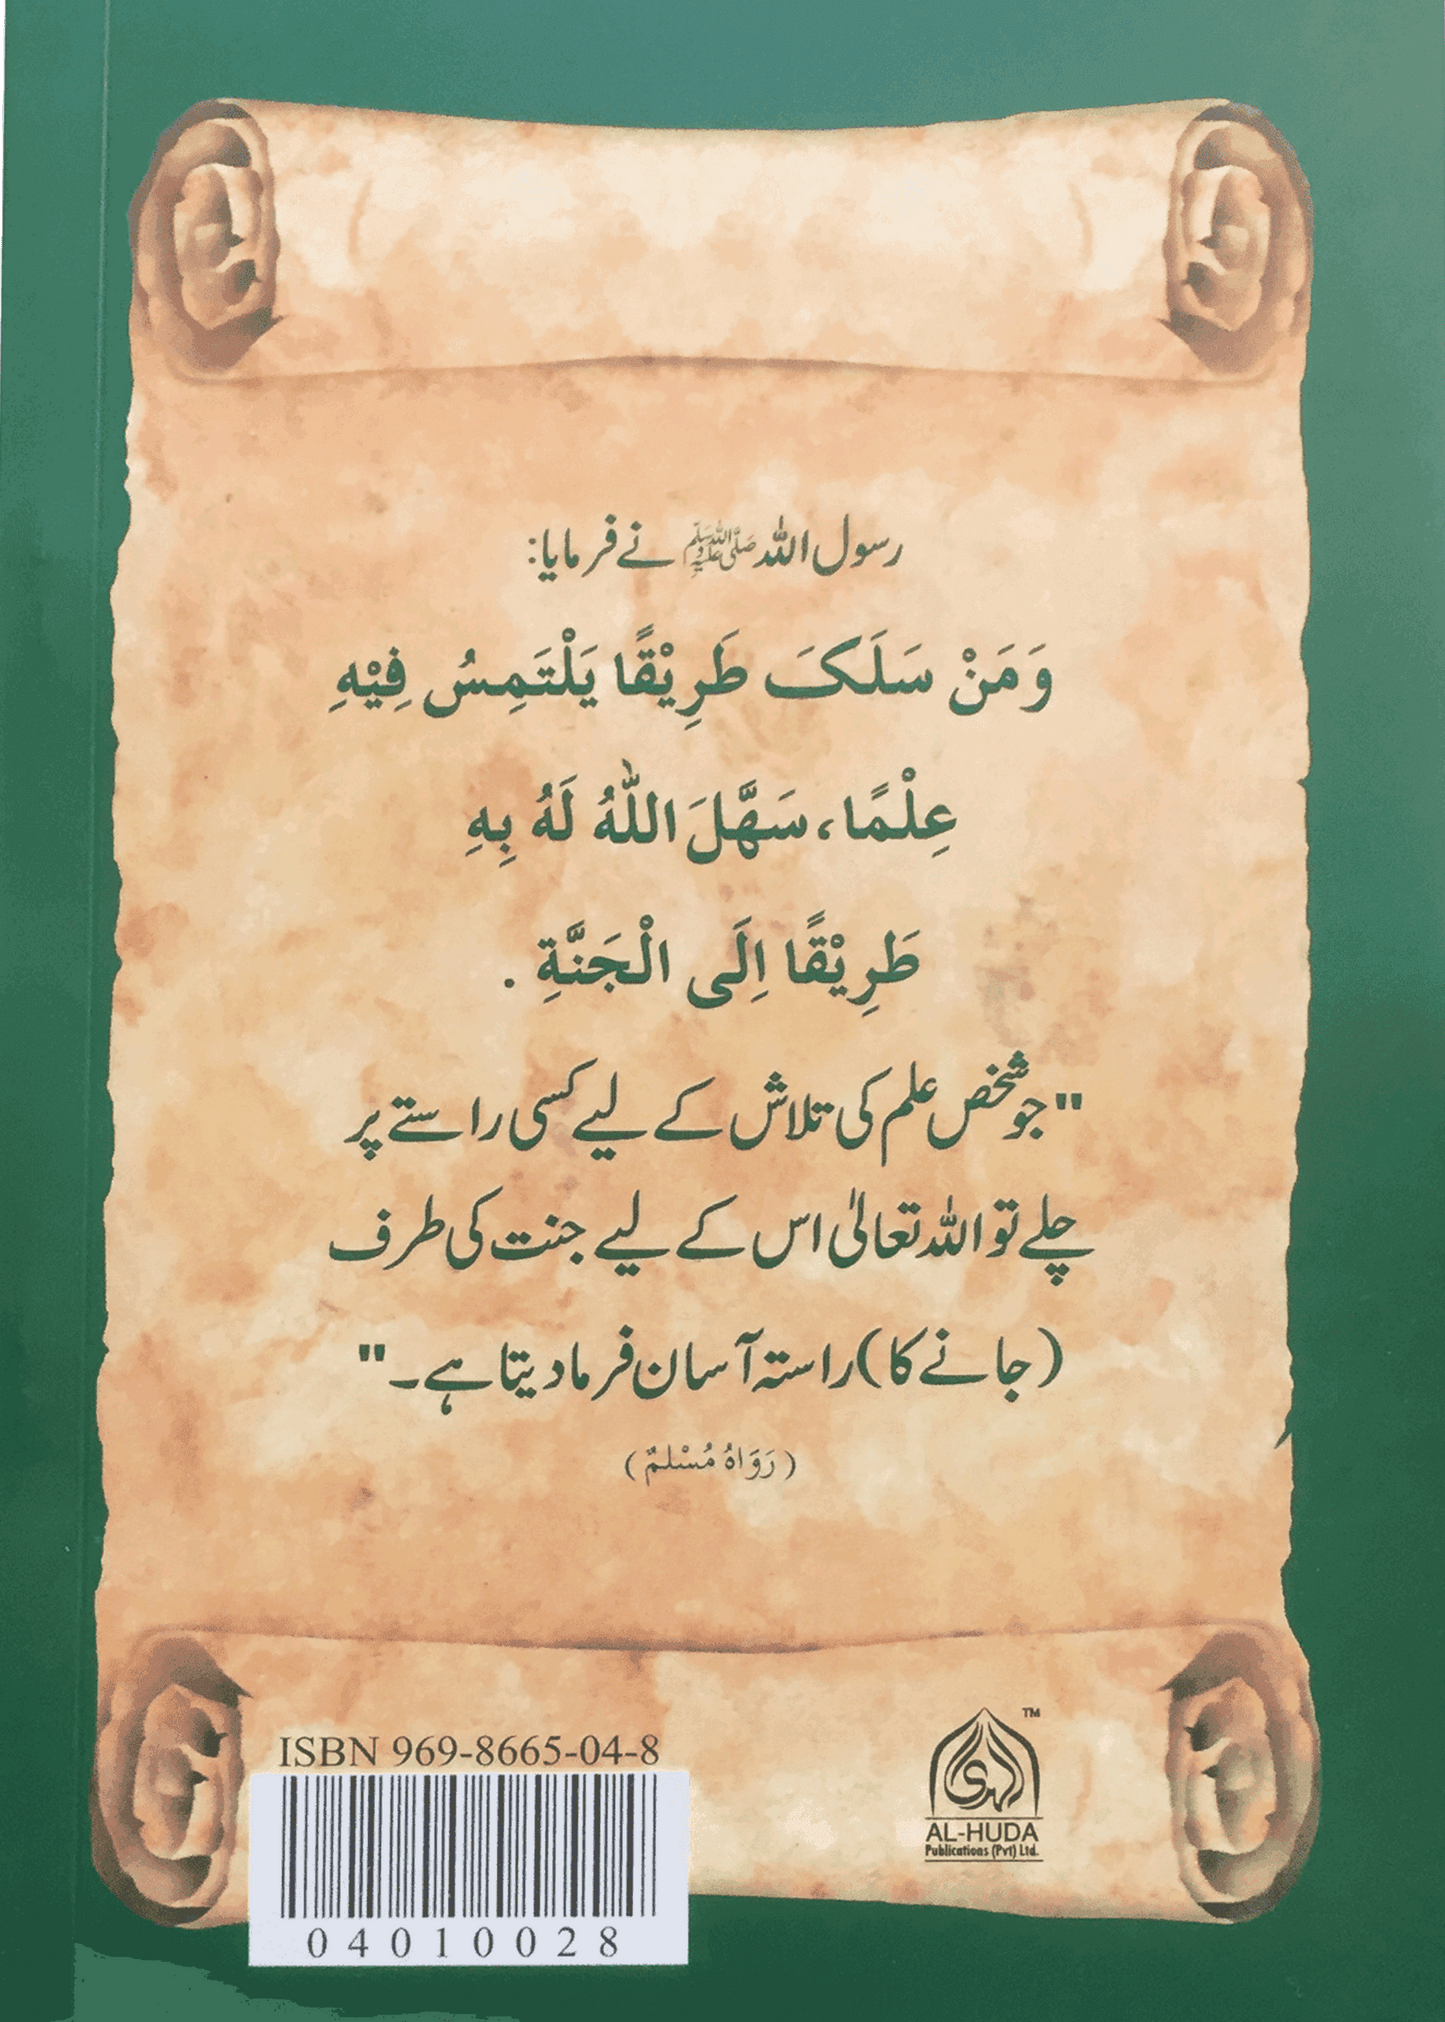 رسول اللہ ﷺ نے فرمایا:
وَمَنْ سَلَکَ طَرِیْقًا یَلْتَمِسُ فِیْهِ
عِلْمًا، سَهَّلَ اللّٰهُ لَهُ بِهِ
طَرِیْقًا اِلَی الْجَنَّةِ .
"جو شخص علم کی تلاش کے لیے کسی راستے پر
چلے تو اللہ تعالیٰ اس کے لیے جنت کی طرف
(جانے کا) راستہ آسان فرما دیتا ہے۔"
(رَوَاهُ مُسْلمٌ)
ISBN 969-8665-04-8
04010028
TM
الہدی
AL-HUDA
Publications (Pvt) Ltd.